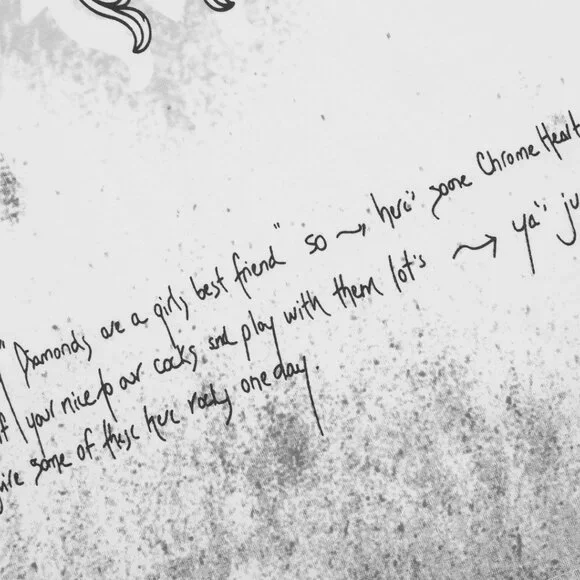 "Diamonds are a girls best friend" so → here' some Chrome Heart
if your nice to our cocks and play with them lot's → ya'i ju
give some of these here rocks one day.